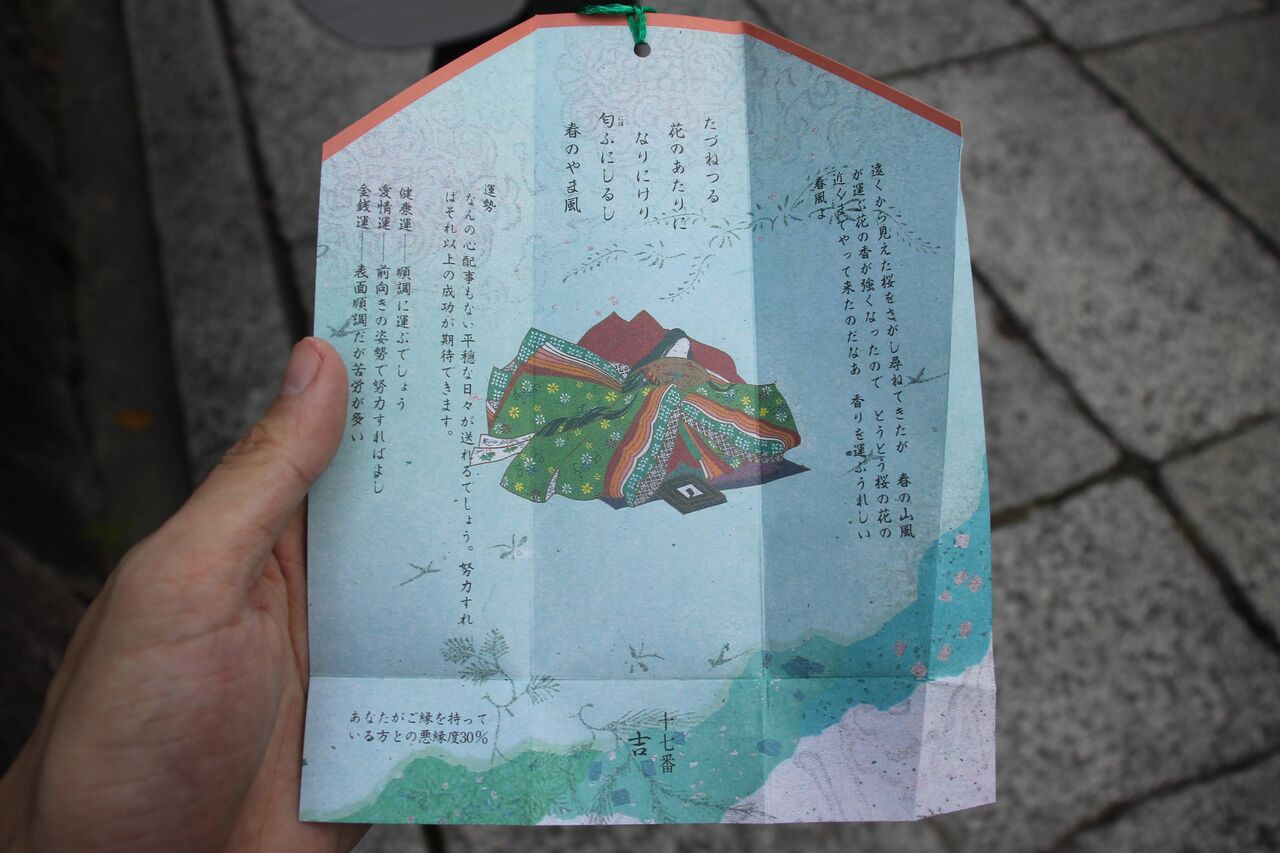 遠くから見えた桜をさがし尋ねてきたが　春の山風
が運ぶ花の香が強くなったので　とうとう桜の花の
近くまでやって来たのだなあ　香りを運ぶうれしい
春風よ
たづねつる
花のあたりに
なりにけり
匂ふにしるし
春のやま風
運勢
なんの心配事もない平穏な日々が送れるでしょう。努力すれ
ばそれ以上の成功が期待できます。
健康運――順調に運ぶでしょう
愛情運――前向きの姿勢で努力すればよし
金銭運――表面順調だが苦労が多い
十七番
吉
あなたがご縁を持って
いる方との悪縁度30%